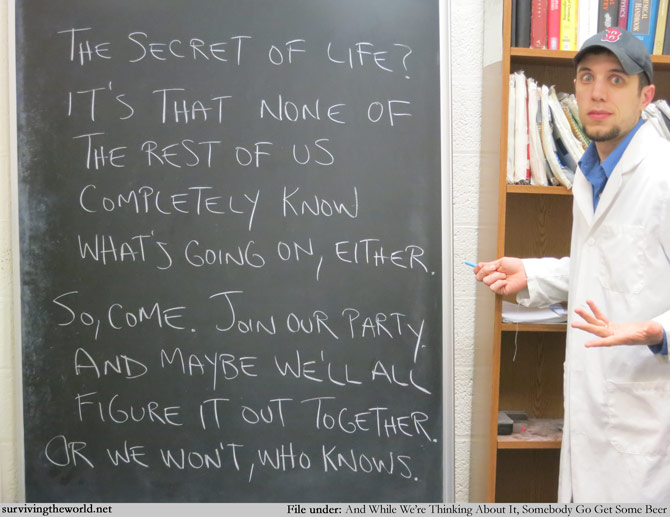 THE SECRET OF LIFE?
IT'S THAT NONE OF
THE REST OF US
COMPLETELY KNOW
WHAT'S GOING ON, EITHER.
SO, COME. JOIN OUR PARTY.
AND MAYBE WE'LL ALL
FIGURE IT OUT TOGETHER.
OR WE WON'T, WHO KNOWS.
B
survivingtheworld.net
File under: And While We're Thinking About It, Somebody Go Get Some Beer